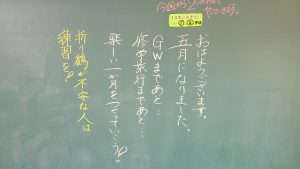 おはようございます。
五月になりました。
GWまであと…
修学旅行まであと…
楽しい一か月をつくっていこう。
折り鶴が不安な人は
練習を。